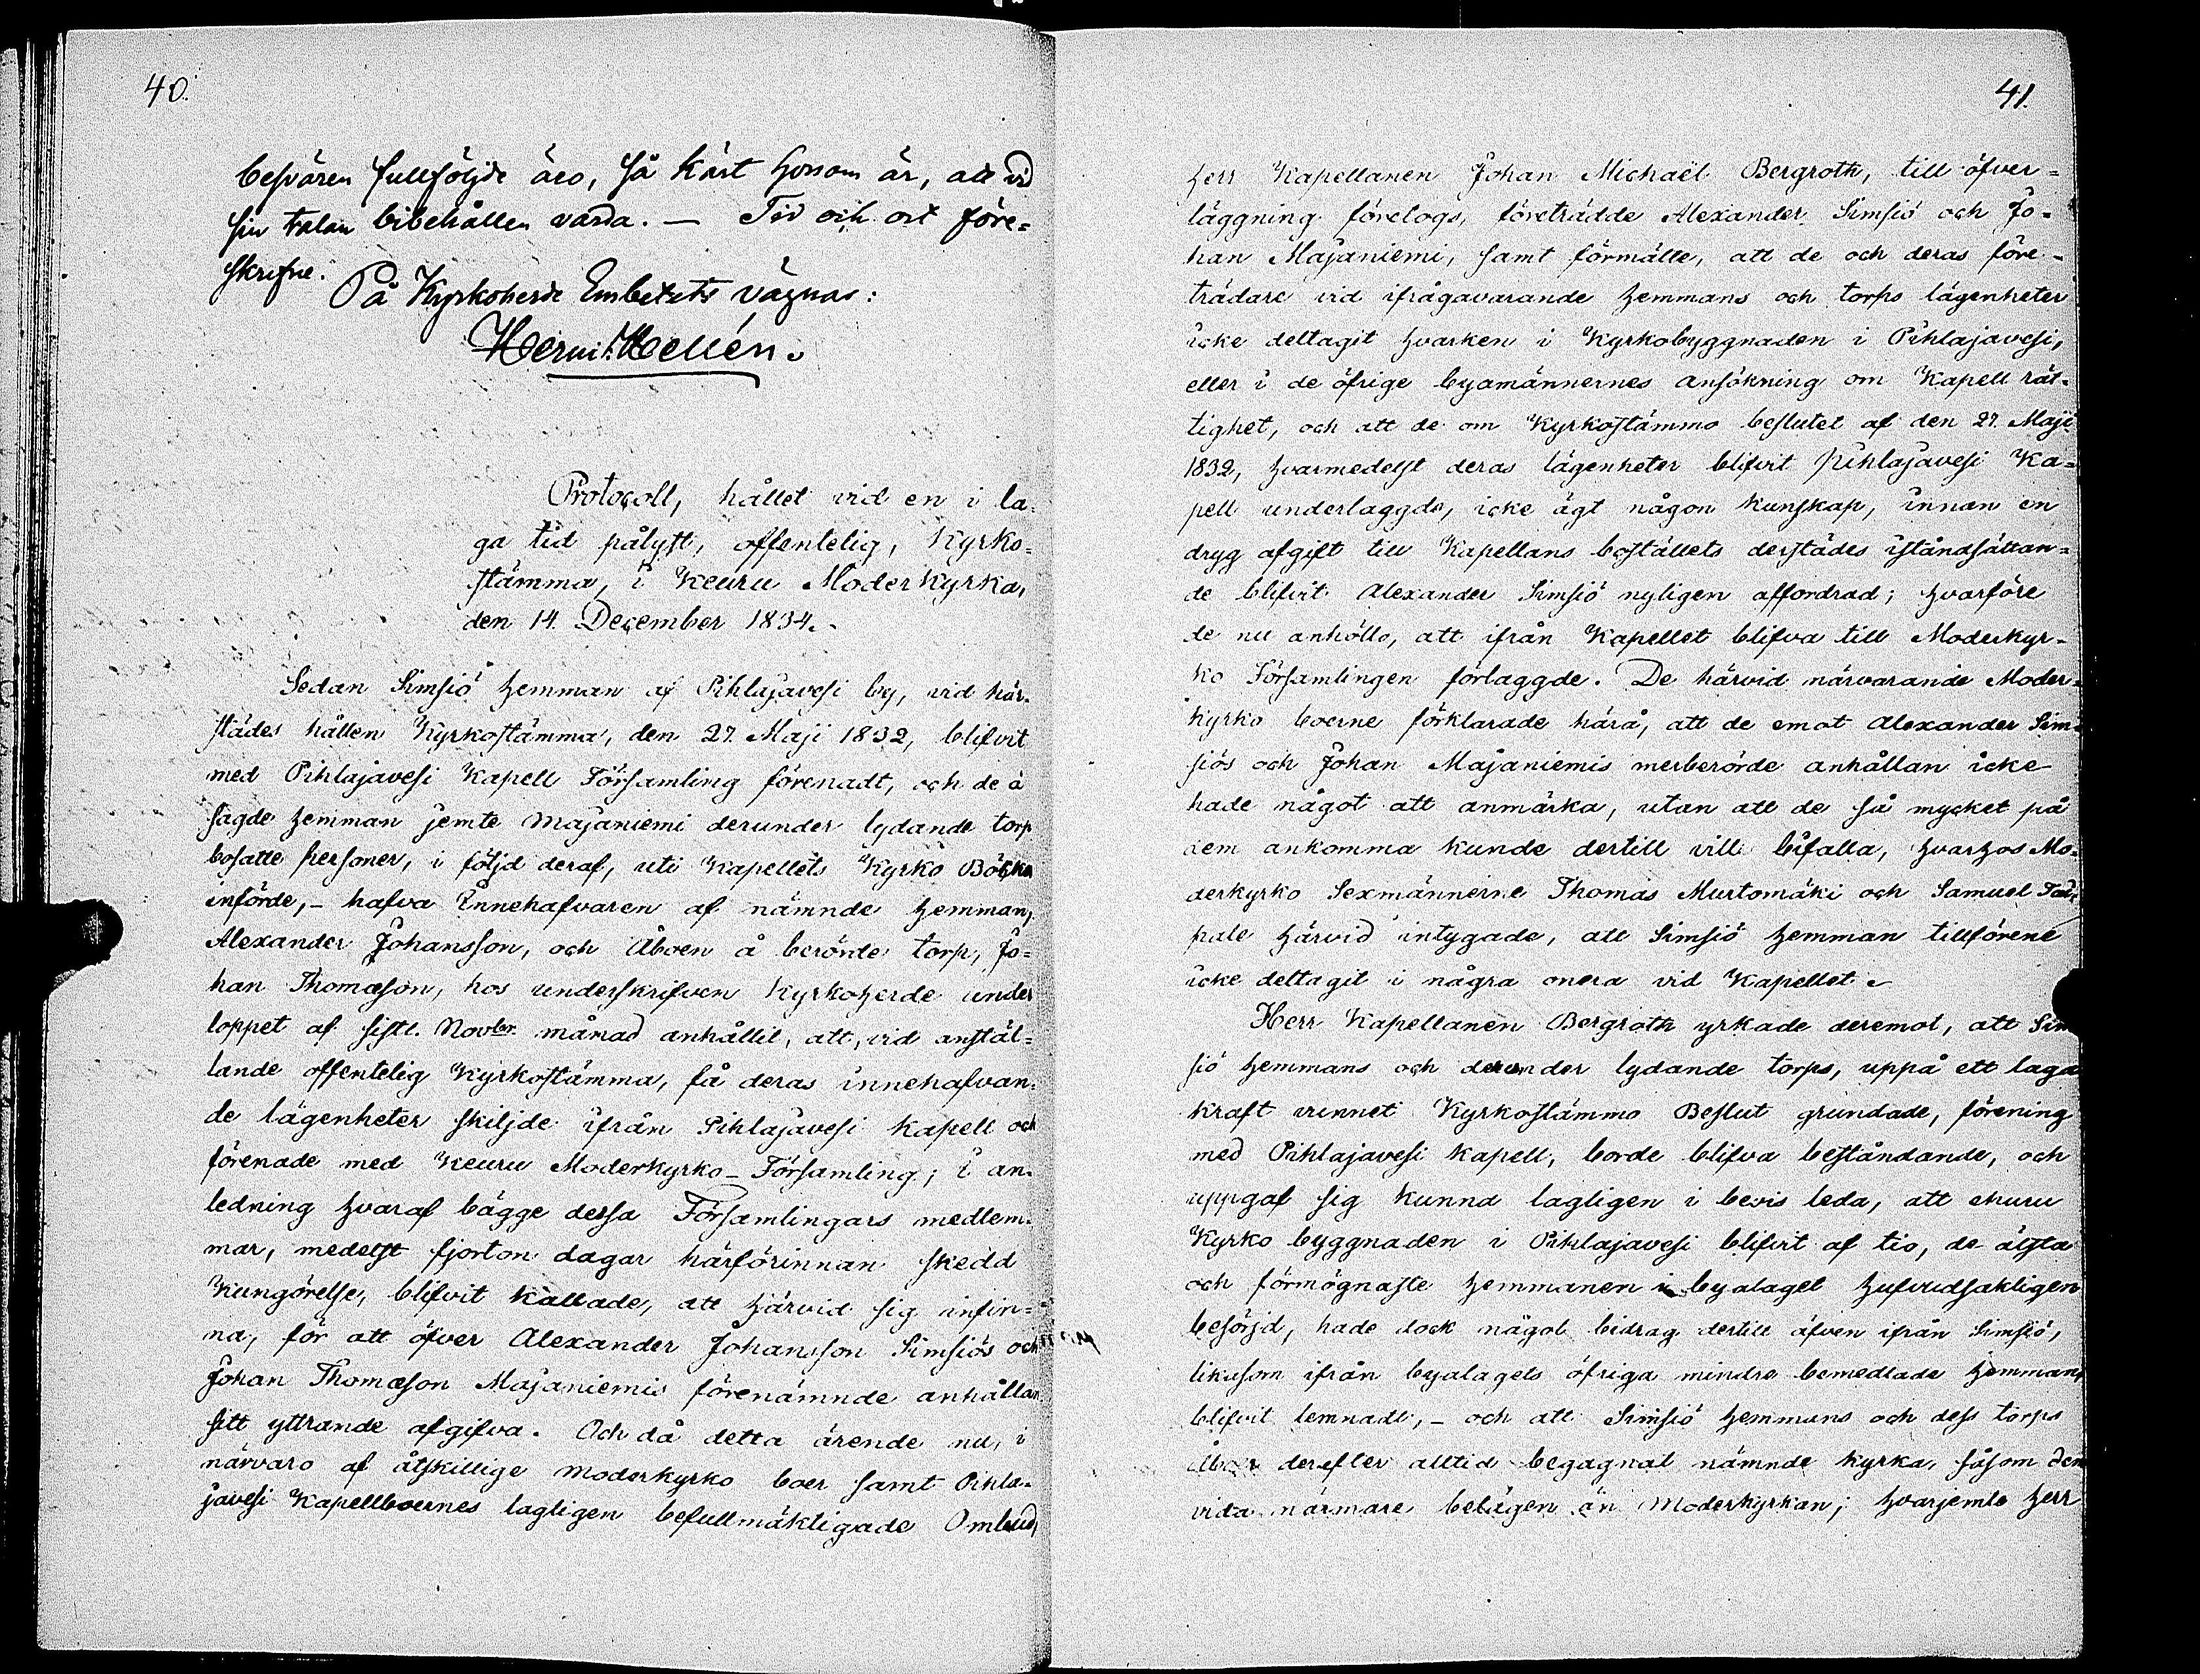 40.
besvären fullföljde äro, så kärt honom är, att vid
sin talan bibehållen varda. — Tid och ort före=
skrifne.
På Kyrkoherde Embetets vägnar:
Herm. Hellén.
Protocoll, hållet vid en i la=
ga tid pålyst, offentelig, Kyrko=
stämma, i Keuru Moderkyrka,
den 14. December 1834.
Sedan Simsiö hemman af Pihlajavesi by, vid här=
städes hållen Kyrkostämma, den 27. Maji 1832, blifvit
med Pihlajavesi Kapell Församling förenadt, och de å
sagde hemman jemte Majaniemi derunder lydande torp
bosatte personer, i följd deraf, uti Kapellets Kyrko Böcker
införde, – hafva Innehafvaren af nämnde hemman,
Alexander Johansson, och Åboen å berörde torp, Jo=
han Thomæson, hos underskrifven Kyrkoherde under
loppet af sistl. Novbr. månad anhållit, att, vid anstäl=
lande offentelig Kyrkostämma, få deras innehafvan=
de lägenheter skiljde ifrån Pihlajavesi Kapell och
förenade med Keuru Moderkyrko-Församling; i an=
ledning hvaraf bägge dessa Församlingars medlem=
mar, medelst fjorton dagar härförinnan skedd
Kungörelse, blifvit kallade, att härvid sig infin=
na, för att öfver Alexander Johansson Simsiös och
Johan Thomæson Majaniemis förenämnde anhållan
sitt yttrande afgifva. Och då detta ärende nu, i
närvaro af åtskillige moderkyrko boer samt Pihla=
javesi Kapellboernes lagligen befullmäktigade Ombud,
41.
Herr Kapellanen Johan Michaël Bergroth, till öfver=
läggning företogs, företrädde Alexander Simsiö och Jo=
han Majaniemi, samt förmälte, att de och deras före=
trädare vid ifrågavarande hemmans och torps lägenheter
icke deltagit hvarken i Kyrkobyggnaden i Pihlajavesi,
eller i de öfrige byamännernes ansökning om Kapell rät=
tighet, och att de om Kyrkostämmo beslutet af den 27. Maji
1832, hvarmedelst deras lägenheter blifvit Pihlajavesi Ka=
pell underlaggde, icke ägt någon kunskap, innan en
dryg afgift till Kapellans boställets derstädes iståndsättan=
de blifvit Alexander Simsiö nyligen affordrad; hvarföre
de nu anhöllo, att ifrån Kapellet blifva till Moderkyr=
ko Församlingen förlaggde. De härvid närvarande Moder=
kyrko boerne förklarade härå, att de emot Alexander Sim=
siös och Johan Majaniemis merberörde anhållan icke
hade något att anmärka, utan att de så mycket på
dem ankomma kunde dertill ville bifalla, hvarhos Mo=
derkyrko Sexmännerne Thomas Murtomäki och Samuel
pale härvid intygade, att Simsiö hemman tillförene
icke deltagit i några onera vid Kapellet.
Herr Kapellanen Bergroth yrkade deremot, att Sim
siö hemmans och derunder lydande torps, uppå ett laga
kraft vunnet Kyrkostämmo Beslut grundade, förening
med Pihlajavesi Kapell, borde blifva beståndande, och
uppgaf sig kunna lagligen i bevis leda, att ehuru
Kyrko byggnaden i Pihlajavesi blifvit af tio, de äldsta
och förmögnaste hemmanen i byalaget hufvudsakligen
besörjd, hade dock något bidrag dertill äfven ifrån Simsiö,
likasom ifrån byalagets öfriga mindre bemedlade hemman,
blifvit lemnadt, – och att Simsiö hemmans och dess torps
Åboer derefter alltid begagnat nämnde kyrka, såsom dem
vida närmare belägen än Moderkyrkan; hvarjemte Herr